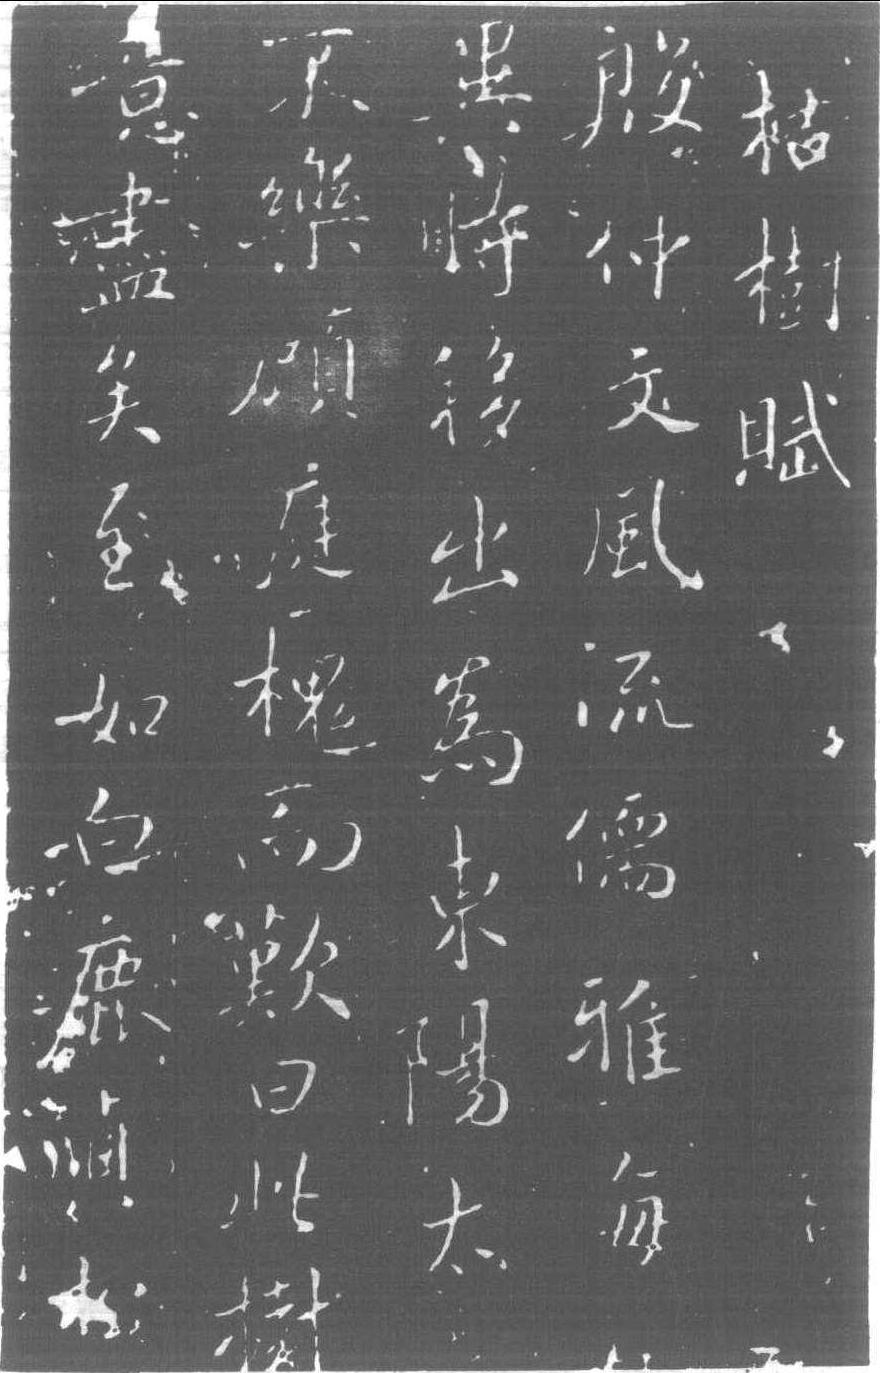 枯樹賦
殷仲文風流儒雅海
異時移出為東陽太
不樂顧庭槐而歎曰此樹
意盡矣至如白鹿貞松